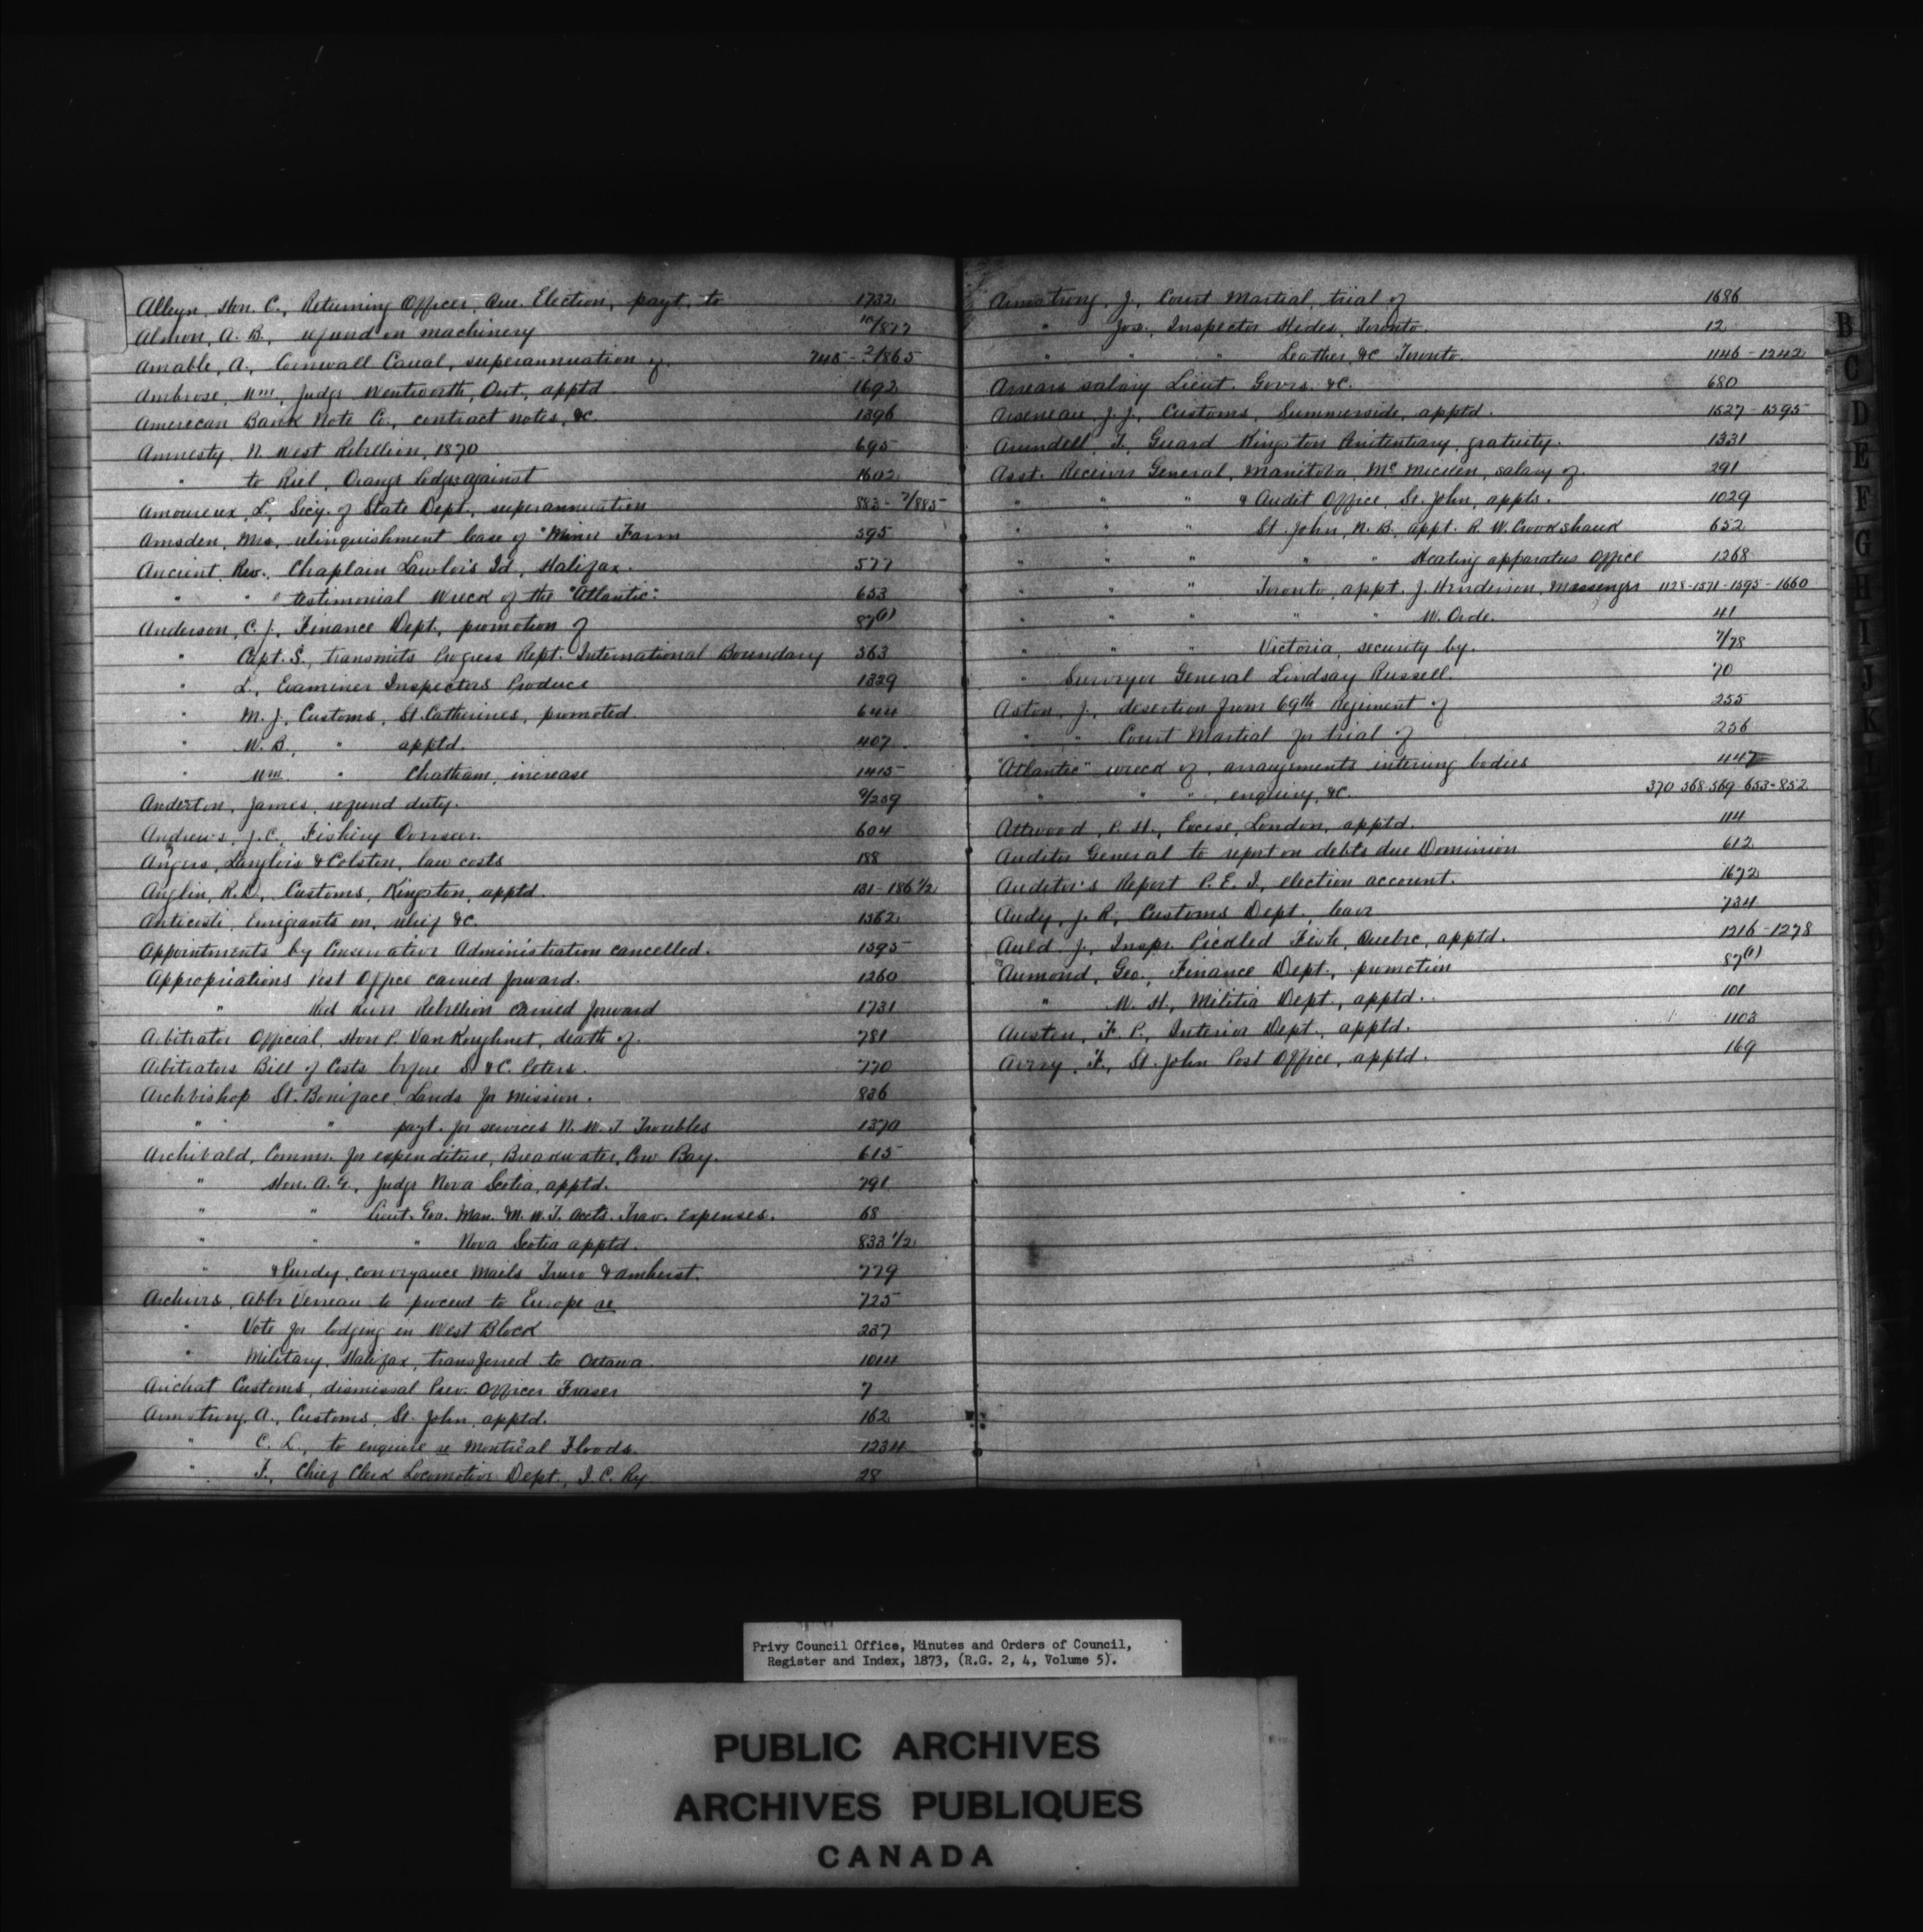 Alleyn, Hon. C., Returning Officer, Que. Election, payt. to 1732
Almon, A. B., refund on machinery 10/877
Amable, A., Cornwall Canal, superannuation of 745 - 2/865
Ambrose, Wm, Judge Wentworth, Ont, apptd 1692
American Bank Note Co., contract notes, &c. 1396
Amnesty, N. West Rebellion, 1870 695
" to Riel, Orange Lodge against 1602
Amoureux, L., Secy. of State Dept., superannuation 883 - 7/885
Amsden, Mrs, relinquishment lease of "Miner Farm 595
Ancient, Rev., Chaplain Lawlor's Id, Halifax. 577
" " testimonial Wreck of the "Atlantic". 653
Anderson, C. J., Finance Dept., promotion of 87(1)
" Capt. S., transmits Progress Rept. International Boundary 363
" L., Examiner Inspectors Produce 1329
" M. J., Customs, St. Catherines, promoted. 644
" W. B., " apptd. 407
" Wm. " Chatham, increase 1415
Anderton, James, refund duty. 9/259
Andrews, J. C., Fishery Overseer. 604
Angers, Langlois & Colston, law costs 188
Anglin, R. D., Customs, Kingston, apptd. 131 - 186 1/2
Anticosti, Emigrants on, relief &c. 1562
Appointments by Conservative Administration cancelled. 1595
Appropriations Post Office carried forward. 1260
" Red River Rebellion carried forward 1731
Arbitrator Official, Hon P. VanKoughnet, death of. 781
Arbitrators Bill of Costs before S. &C. Peters. 770
Archbishop St. Boniface, Lands for Mission. 836
" " " payt. for services N. W. T. Troubles 1370
Archibald, Commr. for expenditure, Breakwater, Cow Bay. 615
" Hon. A. G., Judge Nova Scotia, apptd. 791
" " Lieut. Gov. Man. & N. W. T. Accts. Trav. Expenses. 68
" " " Nova Scotia apptd. 833 1/2
" & Purdy, conveyance Mails Truro & Amherst. 779
Archives, Abbe Verreau to proceed to Europe re 725
" Vote for lodging in West Block 237
" Military, Halifax, transferred to Ottawa. 1014
Arichat Customs, dismissal Prev. Officer Fraser 7
Armstrong, A., Customs, St. John, apptd. 162
" C. L., to enquire re Montreal Floods. 1234
" F., Chief Clerk Locomotive Dept., I. C. Ry 28
Armstrong, J., Court Martial, trial of 1686
" Jos., Inspector Hides, Toronto. 12
" " " Leather, &c Toronto. 1146 - 1242
Arrears salary Lieut. Govrs. &c. 680
Arseneau, J. J., Customs, Summerside, apptd. 1527 - 1595
Arundell, T., Guard Kingston Penitentiary, gratuity. 1331
Asst. Receiver General, Manitoba, McMicken, salary of. 291
" " " & Audit Office, St. John, appts. 1029
" " " St. John, N. B., appt. R. W. Crookshank 652
" " " " " Heating apparatus Office 1268
" " " Toronto, appt. J. Henderson, Messenger 1128 - 1571 - 1595 - 1660
" " " " " W. Orde. 41
" " " Victoria, security by. 7/78
" Surveyor General Lindsay Russell. 70
Aston, J., desertion from 69th Regiment of 255
" " Court Martial for trial of 256
"Atlantic" wreck of, arrangements interring bodies 1147
" " ", enquiry, &c. 370 368 569 - 653 - 852
Attwood, P. H., Excise, London, apptd. 114
Auditor General to report on debts due Dominion 612
Auditor's Report P. E. I., election account. 1672
Audy, J. R., Customs Dept., leave 734
Auld, J., Inspr. Pickled Fish, Quebec, apptd. 1216 - 1278
Aumond, Geo., Finance Dept., promotion 87(1)
" W. H., Militia Dept., apptd. 101
Austen, F. P., Interior Dept., apptd. 1103
Avery, F., St. John Post Office, apptd. 169
B
C
D
E
F
G
H
I
J
K
Privy Council Office, Minutes and Orders of Council,
Register and Index, 1873, (R.G. 2, 4, Volume 5).
PUBLIC ARCHIVES
ARCHIVES PUBLIQUES
CANADA